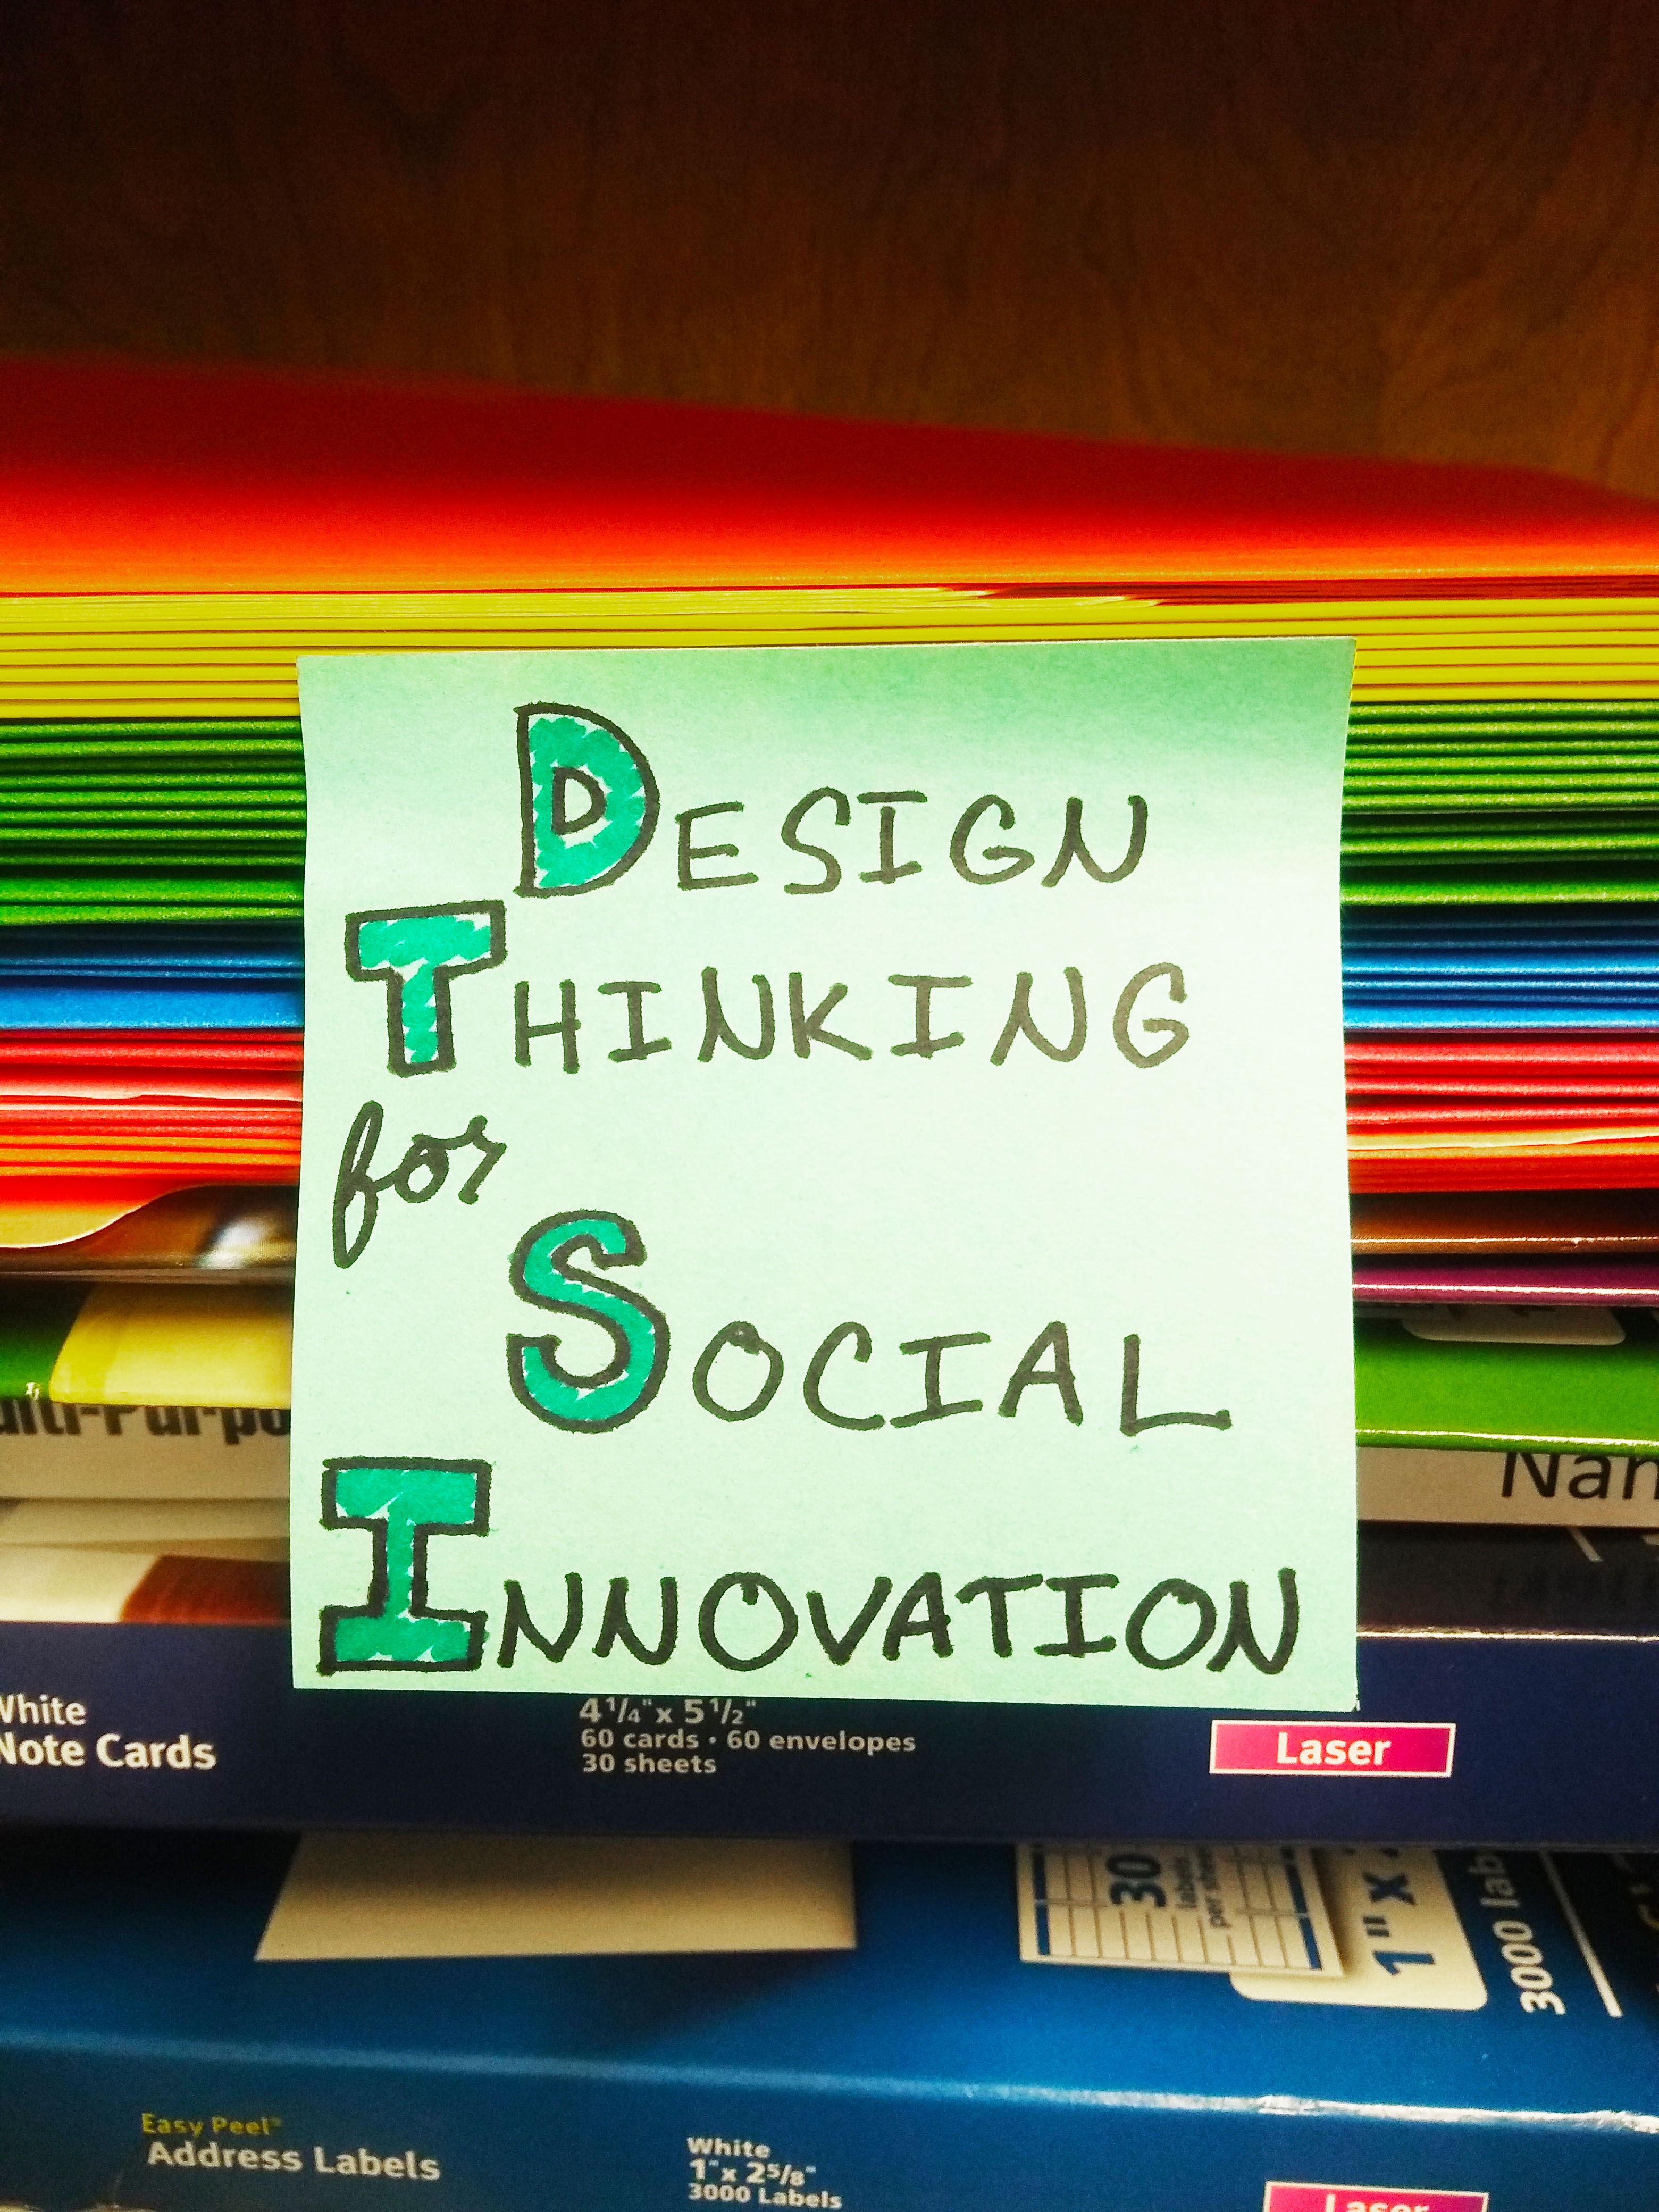 DESIGN
THINKING
for
SOCIAL
INNOVATION
White
Note Cards
4 1/4" x 5 1/2"
60 cards • 60 envelopes
30 sheets
Laser
30
labels
per sheet
1" x
3000
Easy Peel
Address Labels
White
1" x 2 5/8"
3000 Labels
Laser